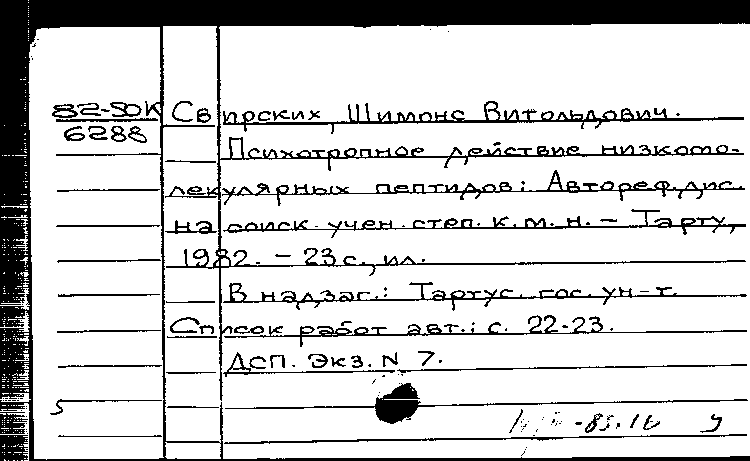 82-50К
6288
Свирских, Шимонс Витольдович.
Психотропное действие низкомо-
лекулярных пептидов: Автореф. дис.
на соиск. учен. степ. к.м.н. – Тарту,
1982. – 23 с., ил.
В надзаг.: Тартус. гос. ун-т.
Список работ авт.: с. 22-23.
ДСП. Экз. N 7.
5
-85.16 у